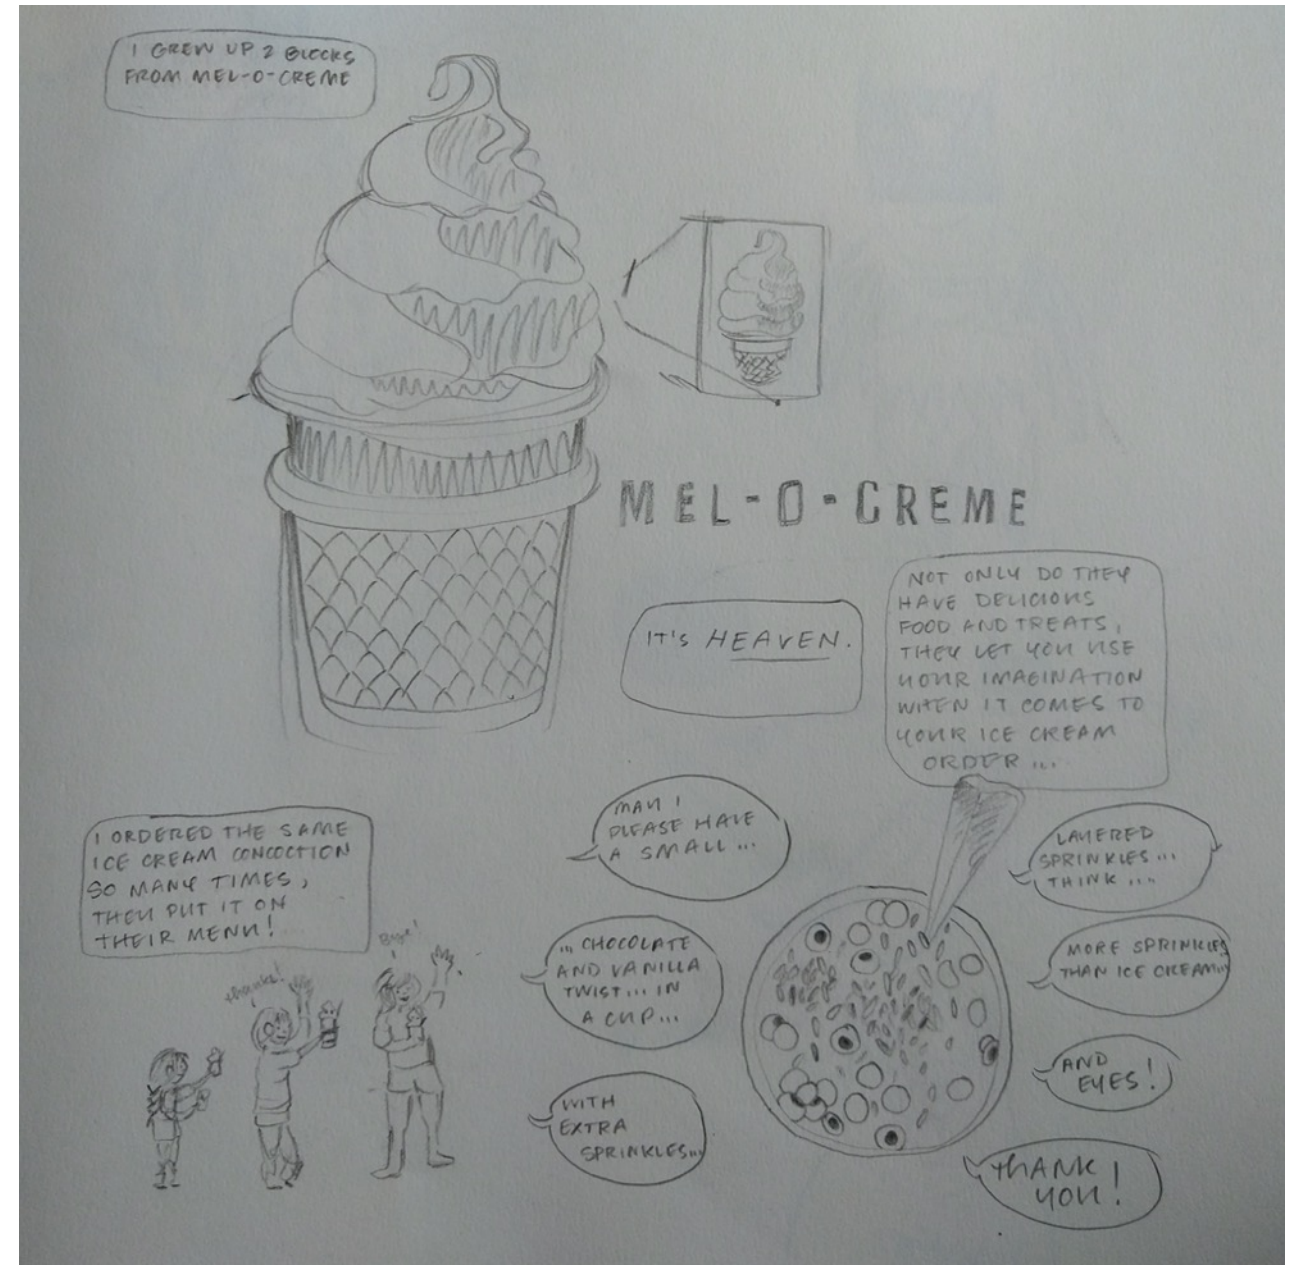 I GREW UP 2 BLOCKS
FROM MEL-O-CREME
MEL-O-CREME
IT'S HEAVEN.
NOT ONLY DO THEY
HAVE DELICIOUS
FOOD AND TREATS,
THEY LET YOU USE
YOUR IMAGINATION
WHEN IT COMES TO
YOUR ICE CREAM
ORDER...
I ORDERED THE SAME
ICE CREAM CONCOCTION
SO MANY TIMES,
THEY PUT IT ON
THEIR MENU!
thanks!
Bye!
MAY I
PLEASE HAVE
A SMALL...
... CHOCOLATE
AND VANILLA
TWIST... IN
A CUP...
WITH
EXTRA
SPRINKLES...
LAYERED
SPRINKLES...
THINK....
MORE SPRINKLES
THAN ICE CREAM...
AND
EYES!
THANK
YOU!